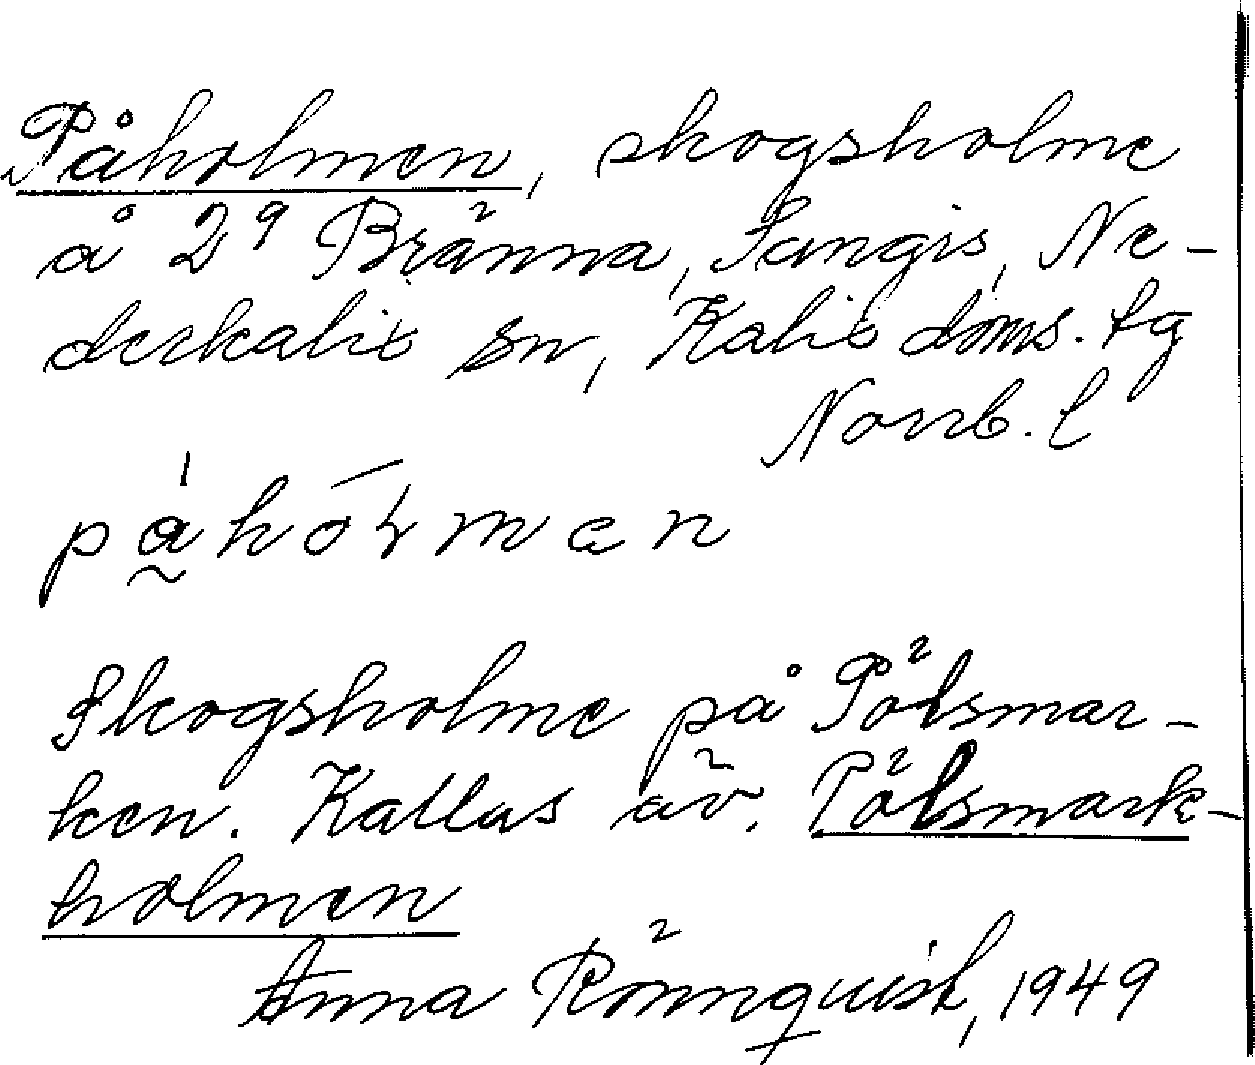 Påholmen, skogsholme
å 2⁹ Bränna, Sangis, Ne-
derkalix sn, Kalix doms. tg
Norrb. l
påhólman
Skogsholme på Pölsmar-
ken. Kallas äv. Pölsmark-
holmen
Anna Rönnquist, 1949